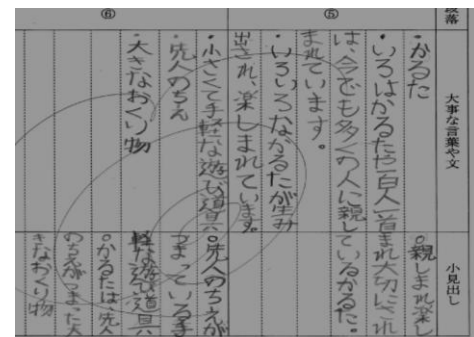 段落
大事な言葉や文
小見出し
⑤
・かるた
・いろはかるたや百人一首
は、今でも多くの人に親し
まれています。
・いろいろなかるたが生み
出され、楽しまれています。
○親しまれ楽し
まれ大切にされ
ているかるた。
⑥
・小さくて手軽な遊び道具
・先人のちえ
・大きなおくり物
○先人のちえが
つまっている手
軽な遊び道具
○かるたは、先人
のちえがつまった大
きなおくり物